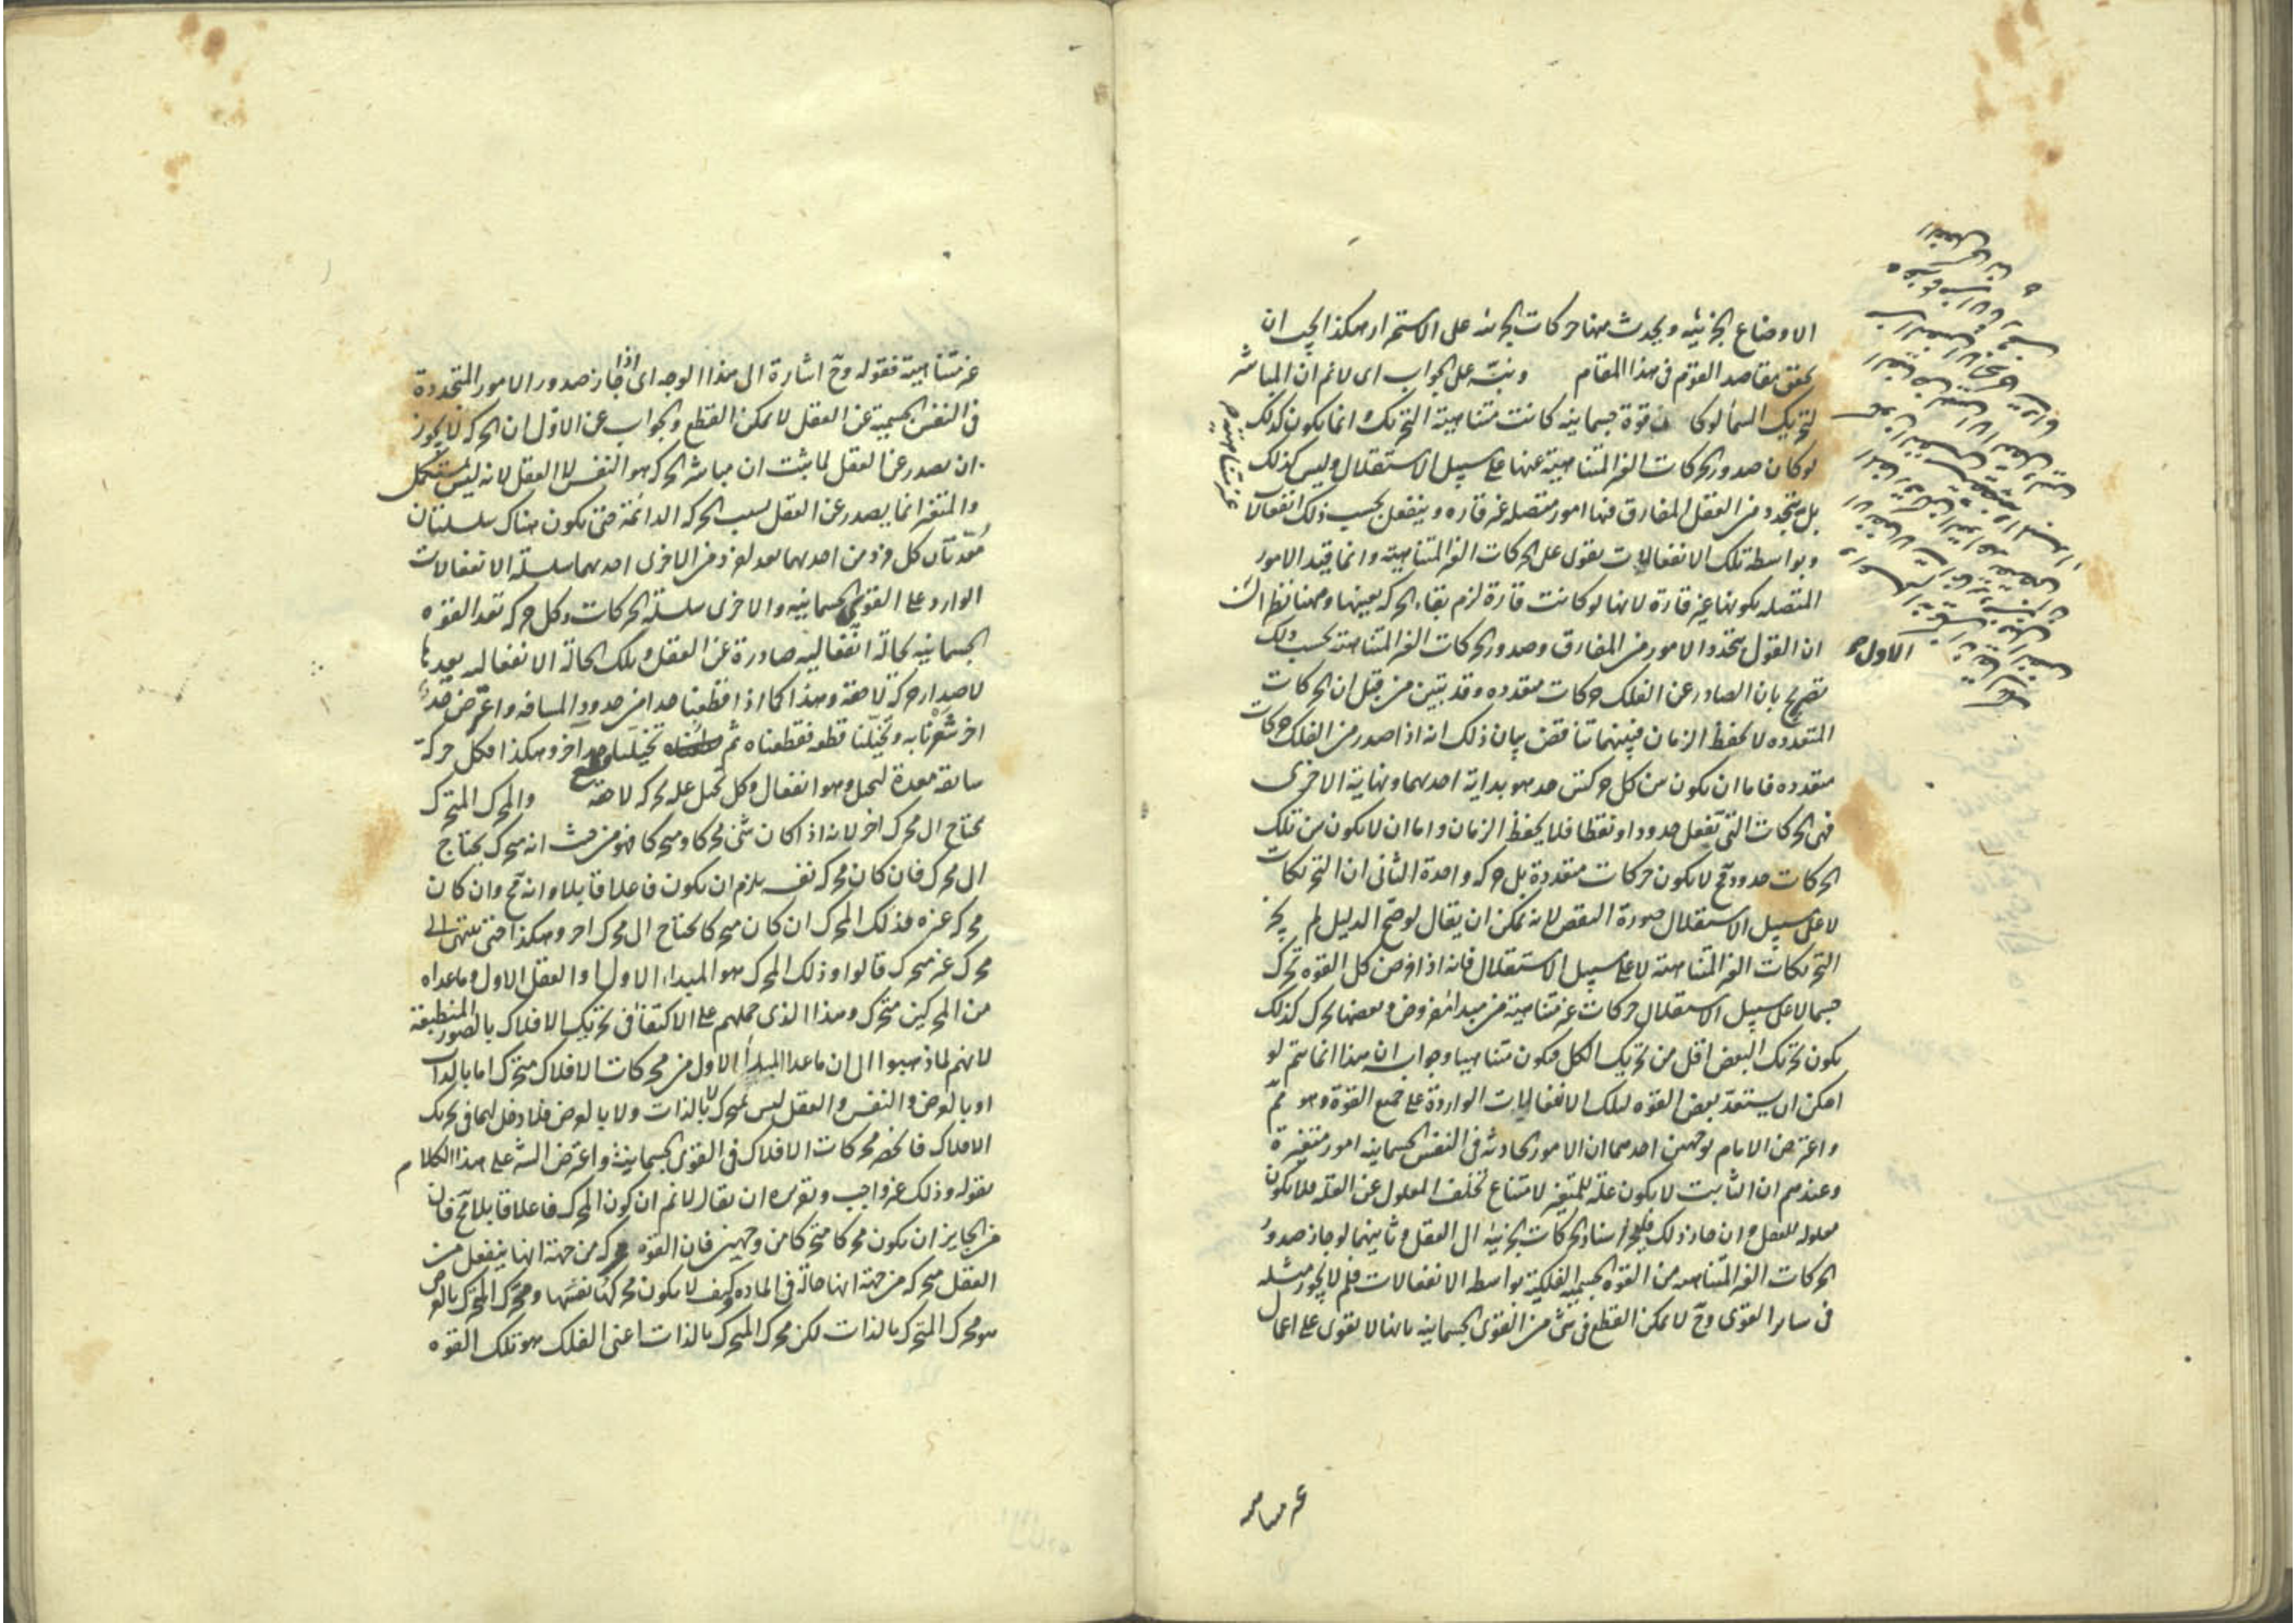 الاوضاع الجزئيه ويحدث منها حركات جزئيه على الاستمرار هكذا يجب ان
يحقق مقاصد القوم فى هذا المقام ونبّه على الجواب اى لانم ان المباشر
لتحريك السما لو كا ن قوة جسمانيه كانت متناهية التحريك انما يكون كذلك
لو كان صدور الحركات الغير المتناهية عنها على سبيل الاستقلال وليس كذلك
بل يتجدد من العقل المفارق فيها امور متصله غير قاره وينفعل بحسب ذلك انفعالا
غير متناهية
وبواسطة تلك الانفعالات يقوى على الحركات الغير المتناهية وانما قيد الامور
المتصله بكونها غير قارة لانها لو كانت قارة لزم بقاء الحركه بعينها وههنا نظران
الاول
ان القول بتجدد الامور من المفارق وصدور الحركات الغير المتناهية بحسب ذلك
تصريح بان الصادر عن الفلك حركات متعدده وقد تبين من قبل ان الحركات
المتعدده لا تحفظ الزمان فبينهما تناقض بيان ذلك انه اذا صدر من الفلك حركات
متعدده فاما ان يكون بين كل حركتين حد هو بداية احدهما ونهاية الاخرى
فهى الحركات التى تفعل حدودا ونقطا فلا يحفظ الزمان واما ان لا يكون بين تلك
الحركات حدود فح لا يكون حركات متعددة بل حركه واحدة الثانى ان التحريكات
لا على سبيل الاستقلال صورة النقض لانه يمكن ان يقال لو صح الدليل لم يجز
التحريكات الغير المتناهية لا على سبيل الاستقلال فانه اذا فرض كل القوه تحرك
جسما لا على سبيل الاستقلال حركات غير متناهية من مبدا مفروض وبعضها يحرك كذلك
يكون تحريك البعض اقل من تحريك الكل فيكون متناهيا وجوابه ان هذا انما يتم لو
امكن ان يستعد بعض القوه لتلك الانفعالات الواردة على جميع القوة وهو مم
واعترض الامام بوجهين احدهما ان الامور الحادثه فى النفس الجسمانيه امور متغيرة
وعندهم ان الثابت لا يكون علة للمتغير لامتناع تخلف المعلول عن العلة فلا يكون
معلوله للعقل وان جاز ذلك فليجز اسناد الحركات الجزئية الى العقل وثانيهما لو جاز صدور
الحركات الغير المتناهية من القوة الجسمية الفلكية بواسطة الانفعالات فلم لا يجوز مثله
فى ساير القوى وح لا يمكن القطع فى شئ من القوى الجسمانيه بانها لا يقوى على افعال
غير متناهية
غير متناهية فقوله وح اشارة الى هذا الوجه اى اذا جاز صدور الامور المتجددة
فى النفس الجسمية عن العقل لا يمكن القطع والجواب عن الاول ان الحركه لا يجوز
ان يصدر عن العقل لما ثبت ان مباشر الحركه هو النفس لا العقل لانه ليس بمستكمل
والمتغير انما يصدر عن العقل بسبب الحركه الدائمة حتى يكون هناك سلسلتان
مُعدّتان كل فرد من احدهما بعد لفرد من الاخرى احدهما سلسلة الانفعالات
الوارده على القوى الجسمانيه والاخرى سلسلة الحركات وكل حركه تعد القوه
الجسمانيه لحالة انفعاليه صادرة عن العقل وتلك الحالة الانفعاليه يعدها
لاصدار حركة لاحقة وهذا كما اذا قطعنا حدا من حدود المسافه واعترض حد
اخر شعرنا به وتخيلنا قطعه فقطعناه ثم تخيلنا حدا اخر وهكذا فكل حركة
سابقة معدة لتخيل وهو انفعال وكل تخيل علة لحركه لاحقة والمحرك المتحرك
يحتاج الى محرك اخر لانه اذا كان شئ محركا ومتحركا فهو من حيث انه متحرك يحتاج
الى محرك فان كان محركه نفسه يلزم ان يكون فاعلا قابلا وانه مح وان كان
محركه غيره فذلك المحرك ان كان متحركا يحتاج الى محرك اخر وهكذا حتى ينتهى الى
محرك غير متحرك قالوا وذلك المحرك هو المبداء الاول والعقل الاول وما عداه
من المحركين متحرك وهذا الذى حملهم على الاكتفأ فى تحريك الافلاك بالصور المنطبعة
لانهم لما ذهبوا الى ان ماعدا المبدأ الاول من محركات الافلاك متحرك اما بالذات
او بالعرض والنفس والعقل ليس بمتحرك لا بالذات ولا بالعرض فلا دخل لهما فى تحريك
الافلاك فانحصر محركات الافلاك فى القوى الجسمانية واعترض الش على هذا الكلام
بقوله وذلك غير واجب وتقريره ان يقال لانم ان كون المحرك فاعلا قابلا مح فان
من الجايز ان يكون محركا متحركا من وجهين فان القوة محركه من جهة انها ينفعل من
العقل متحركه من جهة انها حالة فى الماده كيف لا يكون محركها نفسها ومحرك المتحرك بالعرض
هو محرك المتحرك بالذات لكن محرك المتحرك بالذات اعنى الفلك هو تلك القوه